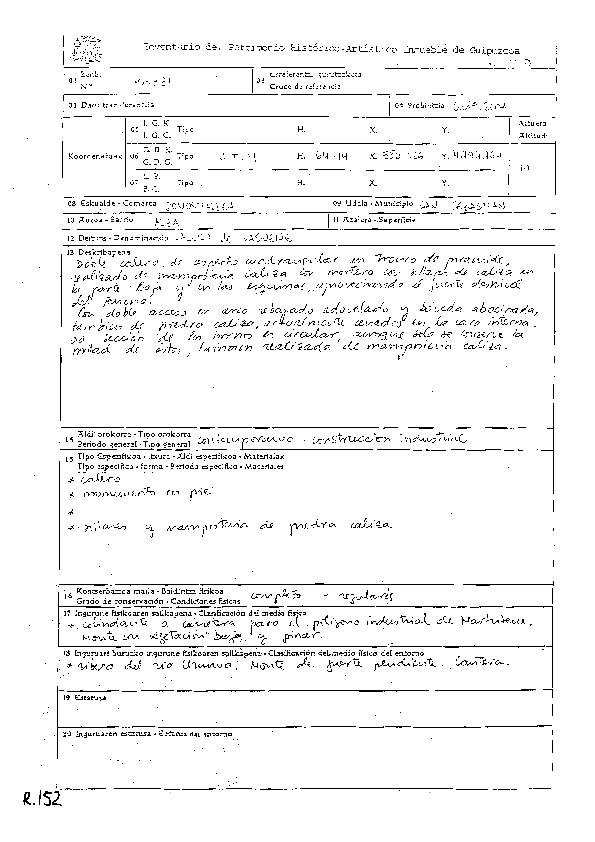 Inventario del Patrimonio Histórico-Artístico Inmueble de Guipuzcoa
01 Zenb. N.º
02 Erreferentzi gurutzatuta Cruce de referencia
03 Data transferentzia
04 Probintzia GUIPUZCOA
Koordenatuak
05 I. G. K. I. G. C. Tipo H. X. Y.
Altuera Altitud
06 G. D. G. Tipo H. 64-14 X. Y.
07 Tipo H. X. Y.
08 Eskualde - Comarca DONOSTIALDEA
09 Udala - Municipio SAN SEBASTIAN
10 Auzoa - Barrio
11 Azalera - Superficie
12 Deitura - Denominación
13 Deskribapena
Doble calero, de aspecto cuadrangular en tronco de piramide,
realizado de mamposteria caliza con mortero con sillares de caliza en
la parte baja y en las esquinas, aprovechando el fuerte desnivel
del terreno.
Con doble acceso en arco rebajado adovelado y bóveda abocinada,
tambien de piedra caliza, actualmente cerrados en la cara interna.
La sección de los hornos es circular, aunque sólo se conserva la
mitad de estos, tambien realizada de mamposteria caliza.
14 Aldi orokorra - Tipo orokorra
Periodo general - Tipo general contemporaneo - construccion industrial
15 Tipo Espezifikoa - itxura - Aldi espezifikoa - Materialak
Tipo específico - forma - Periodo específico - Materiales
* calero
* monumento en pie
*
* sillares y mamposteria de piedra caliza.
16 Kontserbamoa maila - Baldintza fisikoa
Grado de conservación - Condiciones físicas completo - regulares
17 Ingurune fisikoaren sailkapena - Clasificación del medio físico
* colindante a carretera para el poligono industrial de Martutene.
Monte con vegetacion baja y pinar.
18 Inguruari buruzko ingurune fisikoaren sailkapena - Clasificación del medio físico del entorno
* ribera del rio Urumea. Monte de fuerte pendiente. Cantera.
19 Estatusa
20 Inguruaren estatusa - Estatus del entorno
R.152